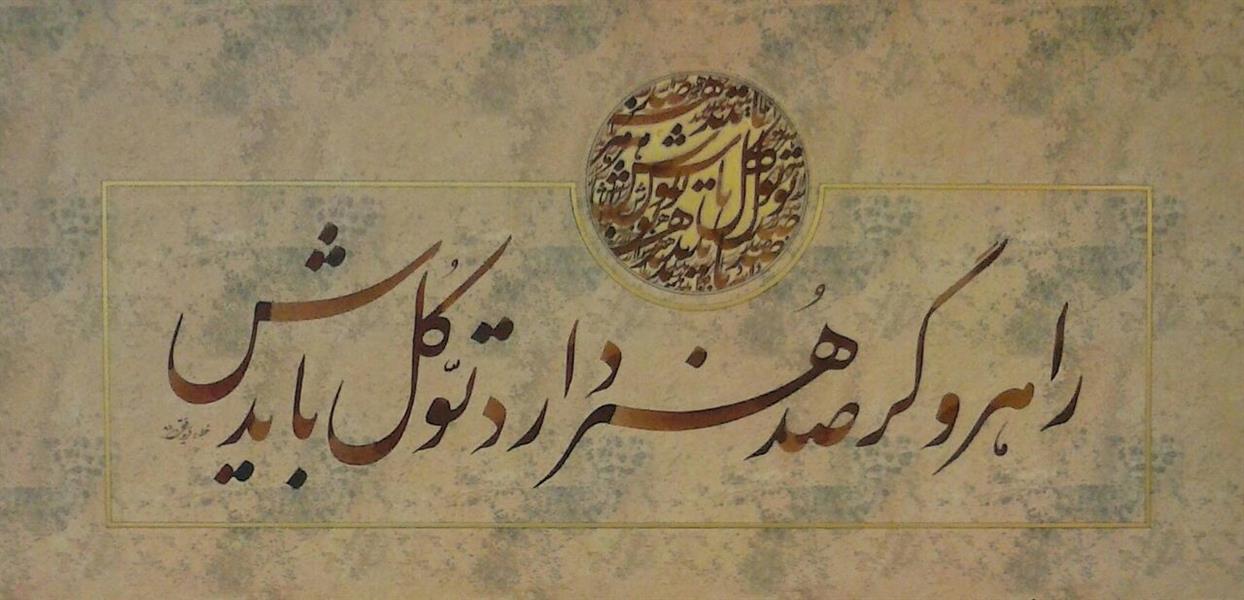 راهرو گر صد هُنر دارد توّکُل بایدش